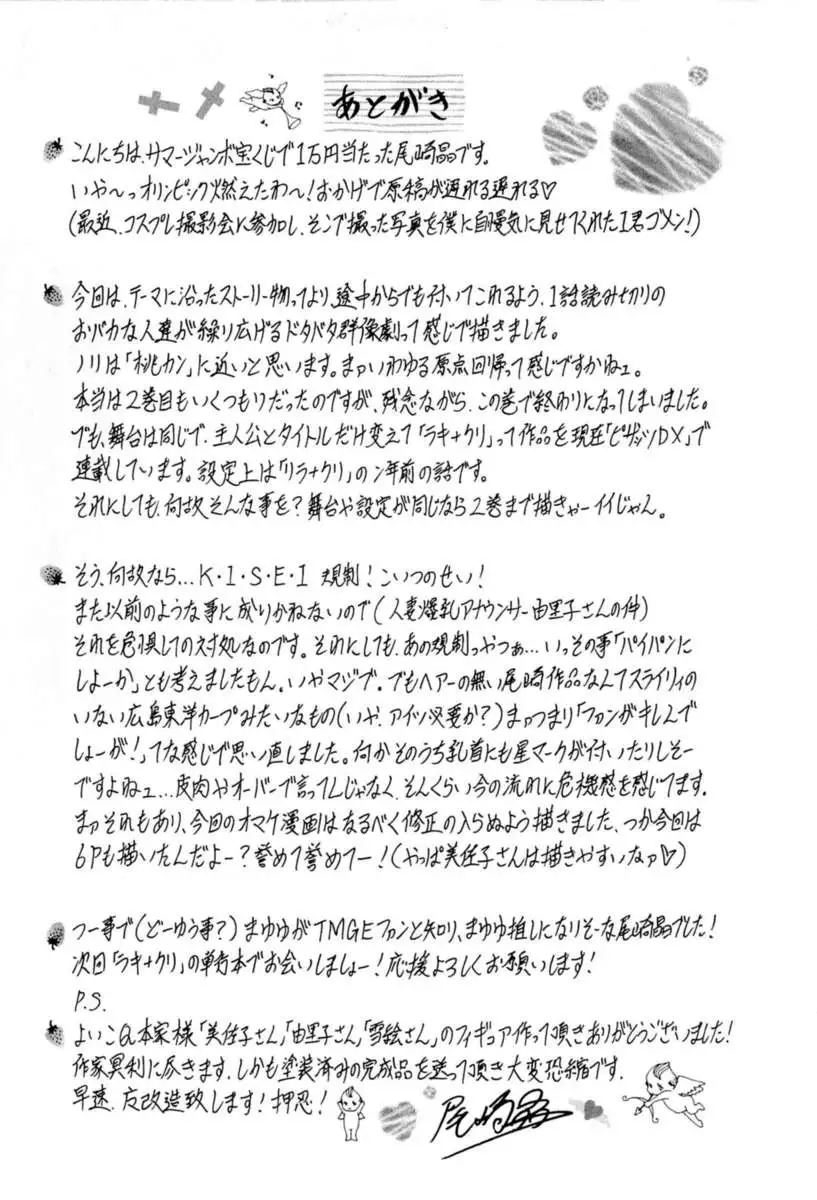 あとがき
こんにちは、サマージャンボ宝くじで1万円当たった尾崎晶です。
いや〜っオリンピック燃えたわ〜！おかげで原稿が遅れる遅れる♡
(最近、コスプレ撮影会に参加し、そこで撮った写真を僕に自慢気に見せてくれたI君ゴメン！)
今回は、テーマに沿ったストーリー物ってより、途中からでも付いてこれるよう、1話読み切りの
おバカな人達が繰り広げるドタバタ群像劇って感じで描きました。
ノリは「桃カン」に近いと思います。まァいわゆる原点回帰って感じですかねェ。
本当は2巻目もいくつもりだったのですが、残念ながら、この巻で終わりになってしまいました。
でも、舞台は同じで、主人公とタイトルだけ変えて「ラキ+クリ」って作品を現在「ピザッツDX」で
連載しています。設定上は「リラ+クリ」の2年前の話です。
それにしても、何故そんな事を？舞台や設定が同じなら2巻まで描きゃーイイじゃん。
そう、何故なら…K・I・S・E・I 規制！こいつのせい！
また以前のような事に成りかねないので(人妻爆乳アナウンサー由里子さんの件)
それを危惧しての対処なのです。それにしても、あの規制っやつァ…いっその事「パイパンに
しよーか」とも考えましたもん。いやマジで。でもヘアーの無い尾崎作品なんてスライリィの
いない広島東洋カープみたいなもの(いや、アイツ必要か？)まァつまり「ファンがキレんで
しょーが！」てな感じで思い直しました。何かそのうち乳首にも星マークが付いたりしそー
ですよねェ…皮肉やオーバーで言ってんじゃなく、そんくらい今の流れに危機感を感じてます。
まァそれもあり、今回のオマケ漫画はなるべく修正の入らぬよう描きました、つか今回は
6Pも描いたんだよー？誉めて誉めてー！(やっぱ美佐子さんは描きやすいなァ♡)
つー事で(どーゆう事？)まゆゆがTMGEファンと知り、まゆゆ推しになりそーな尾崎晶でした！
次回「ラキ+クリ」の単行本でお会いしましょー！応援よろしくお願いします！
P.S.
よいこ@本家様「美佐子さん」「由里子さん」「雪絵さん」のフィギュア作って頂きありがとうございました！
作家冥利に尽きます、しかも塗装済みの完成品を送って頂き大変恐縮です。
早速、魔改造致します！押忍！
尾崎晶